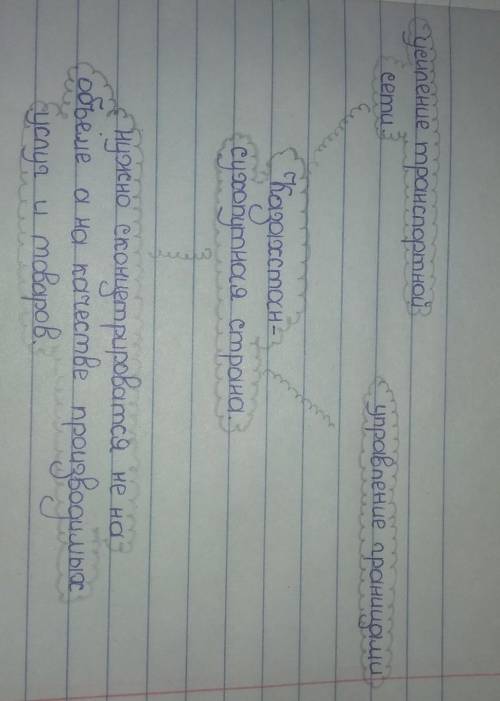 усиление транспортной
сети
управление границами
Казахстан-
сухопутная страна.
нужно сконцетрироватся не на
объёме а на качестве производимых
услуг и товаров.